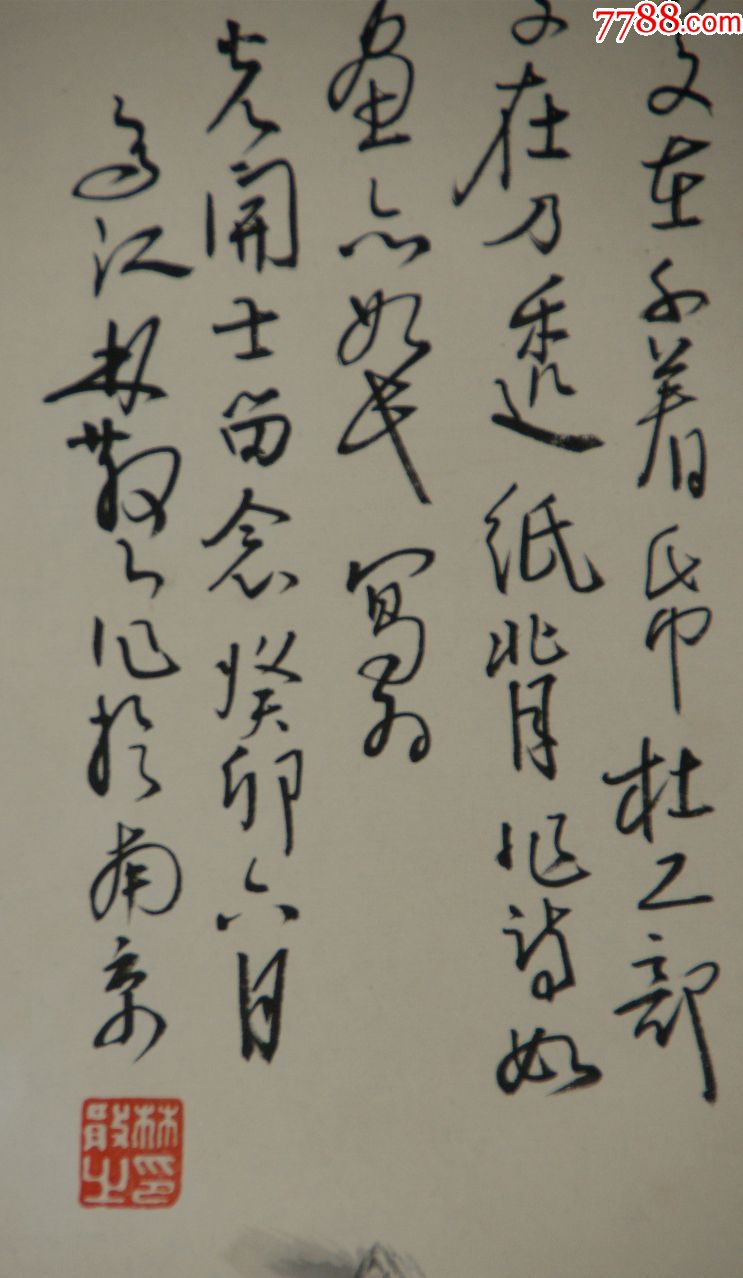 在不着帋杜工部
在乃透紙背作詩如
畫亦如寫為
開士留念癸卯六月
烏江林散之作於南京
林散之印
7788.com